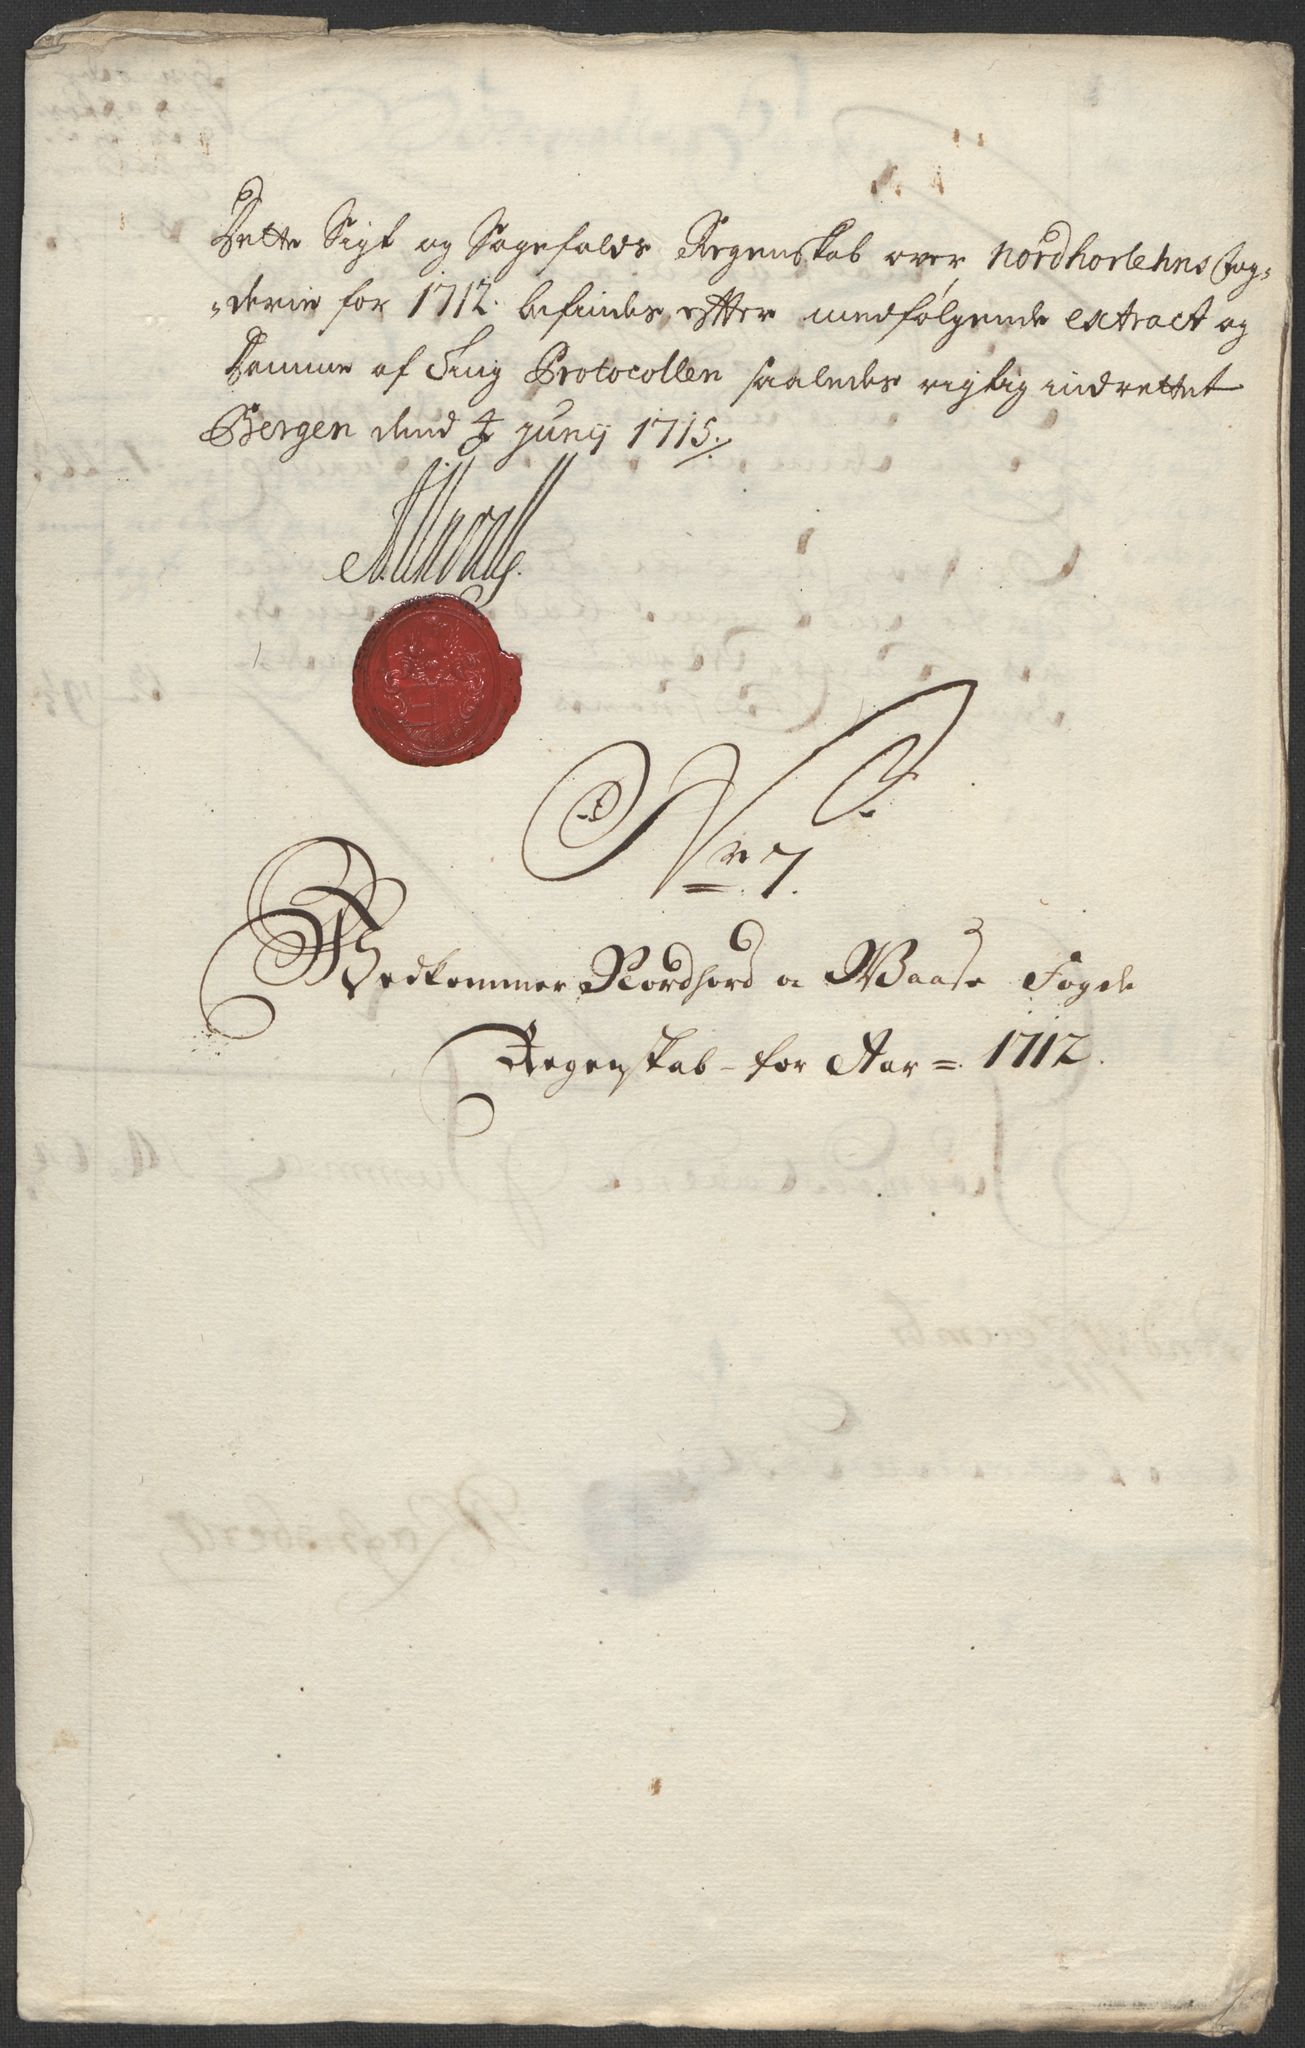 Dette Sigt og Sagefalds Regenskab over Nordhorlehns Fog-
derie for 1712. befindes efter medfølgende extract og
Domme af Ting Protocollen saaledes rigtig indrettet
Bergen dend 4 Junij 1715.
No 7.
Vedkommer Nordhord og Waase Fogde
Regenskab - for Aar = 1712.